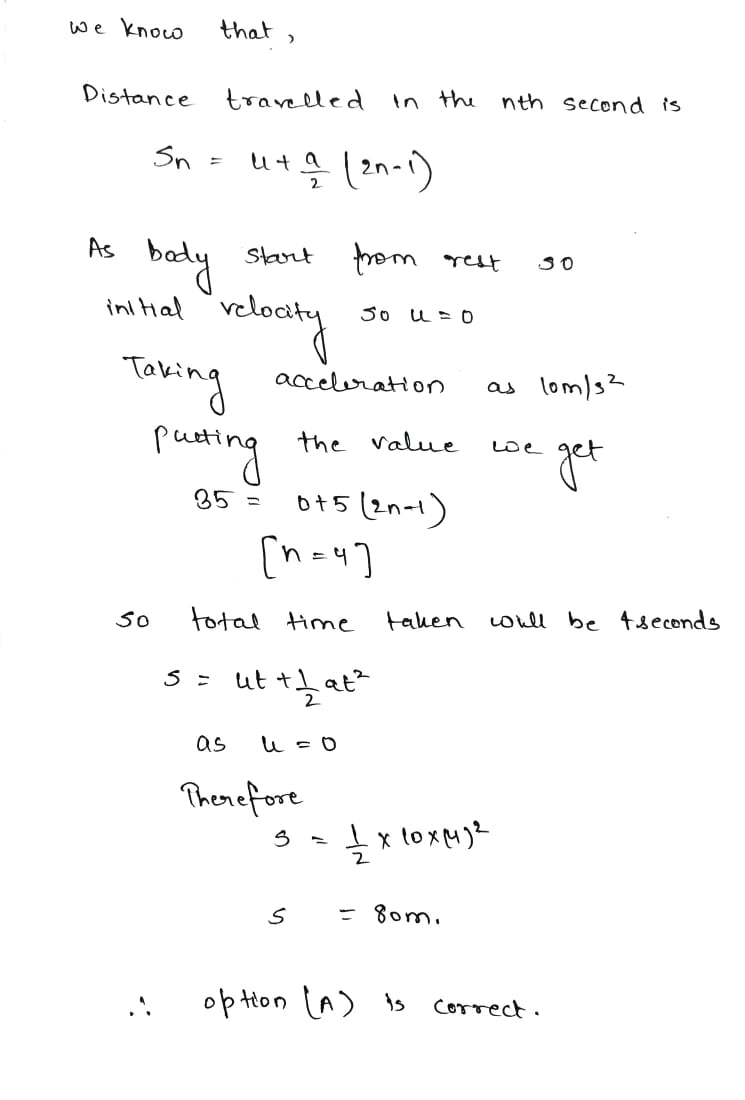 We know that,
Distance travelled in the nth second is
Sn = u + a/2 (2n-1)
As body start from rest so
initial velocity so u = 0
Taking acceleration as 10m/s²
putting the value we get
35 = 0+5(2n-1)
[n = 4]
so total time taken will be 4seconds
s = ut + 1/2 at²
as u = 0
Therefore
s = 1/2 x 10x(4)²
s = 80m.
∴ option (A) is correct.